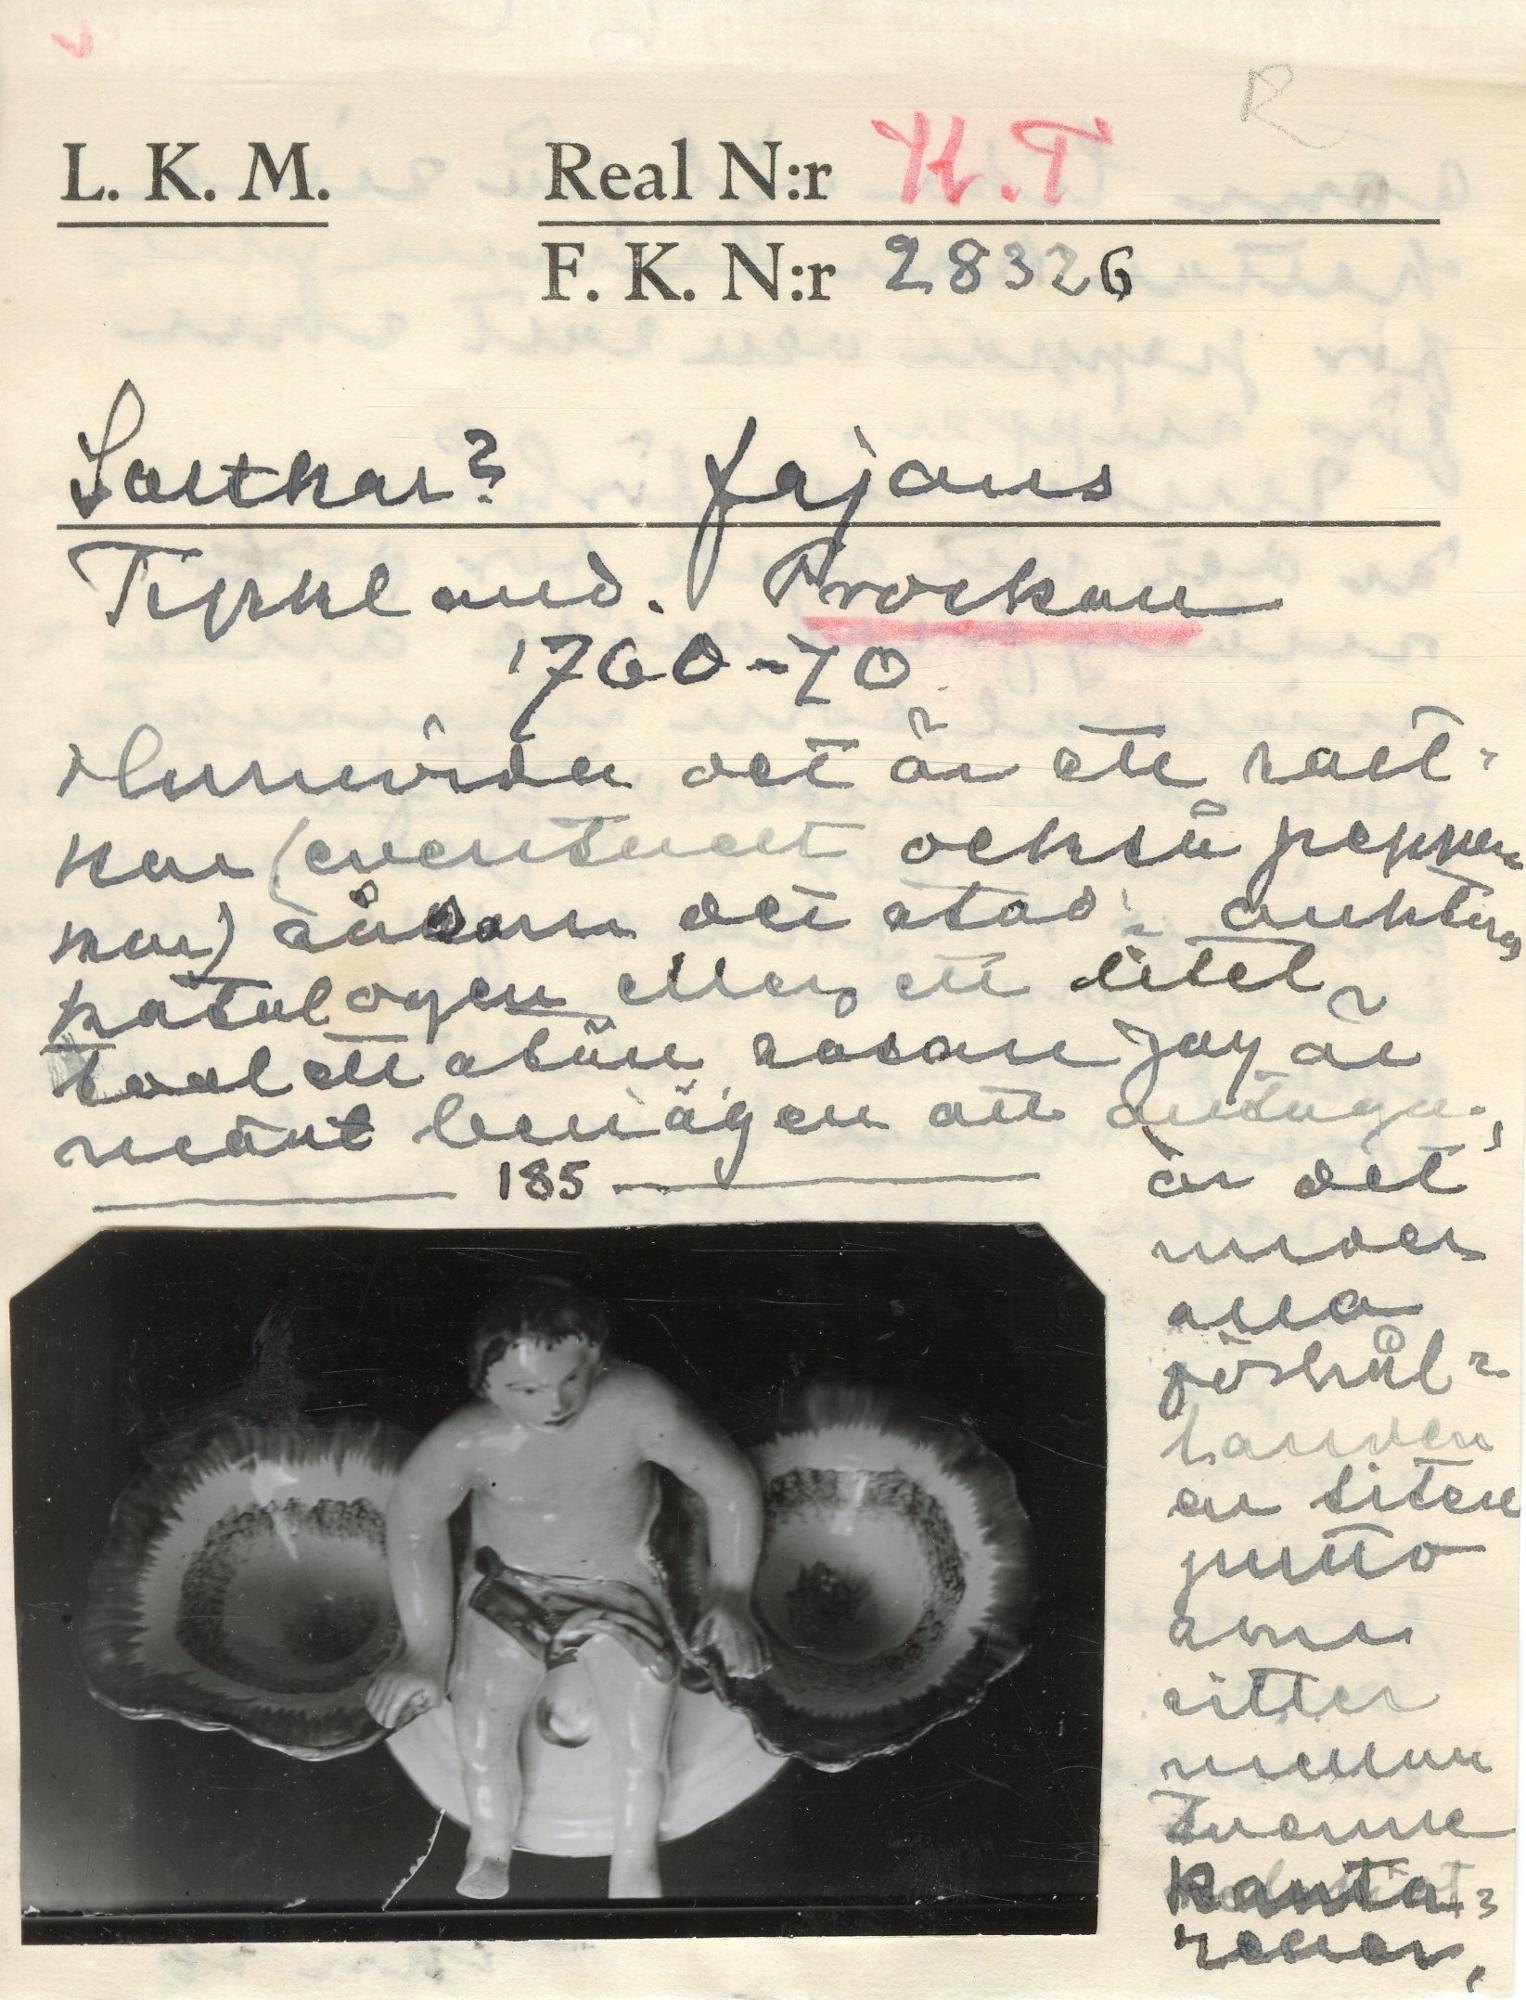 R
L. K. M.
Real N:r H.T
F. K. N:r 28326
Saltkar? fajans
Tyskland. Proskau
1760-70
Huruvida det är ett salt-
kar (eventuellt också peppar-
kar) såsom det stod i auktions
katalogen eller ett litet
toalettställ såsom jag är
mäst benägen att antaga,
är det
under
alla
förhål-
landen
en liten
putto
som
sitter
mellan
tvenne
kanta-
reller,
185